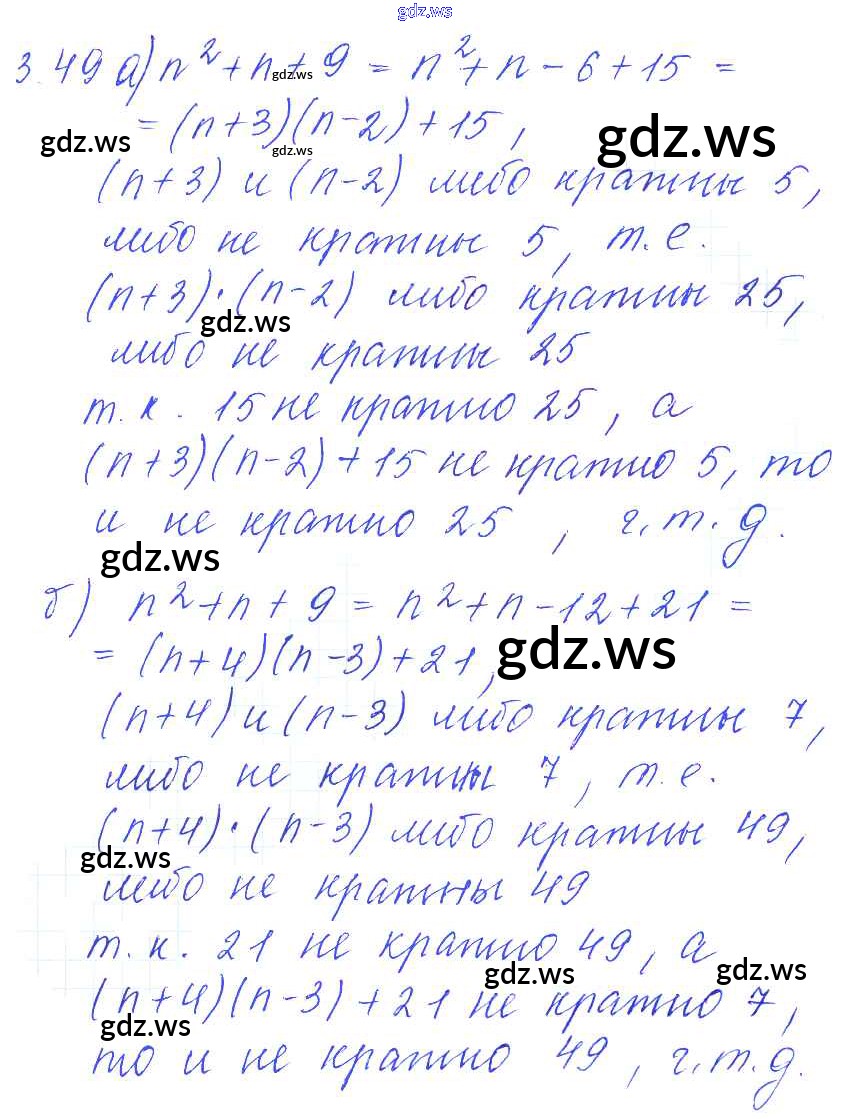 gdz.ws
3.49 а) n² + n + 9 = n² + n - 6 + 15 =
gdz.ws
= (n+3)(n-2) + 15,
gdz.ws
gdz.ws
gdz.ws
(n+3) и (n-2) либо кратны 5,
либо не кратны 5, т.е.
(n+3)·(n-2) либо кратны 25,
gdz.ws
либо не кратны 25
т.к. 15 не кратно 25, а
(n+3)(n-2)+15 не кратно 5, то
и не кратно 25, ч.т.д.
gdz.ws
б) n² + n + 9 = n² + n - 12 + 21 =
= (n+4)(n-3) + 21,
gdz.ws
(n+4) и (n-3) либо кратны 7,
либо не кратны 7, т.е.
(n+4)·(n-3) либо кратны 49,
gdz.ws
либо не кратны 49
т.к. 21 не кратно 49, а
gdz.ws
gdz.ws
(n+4)(n-3) + 21 не кратно 7,
gdz.ws
то и не кратно 49, ч.т.д.